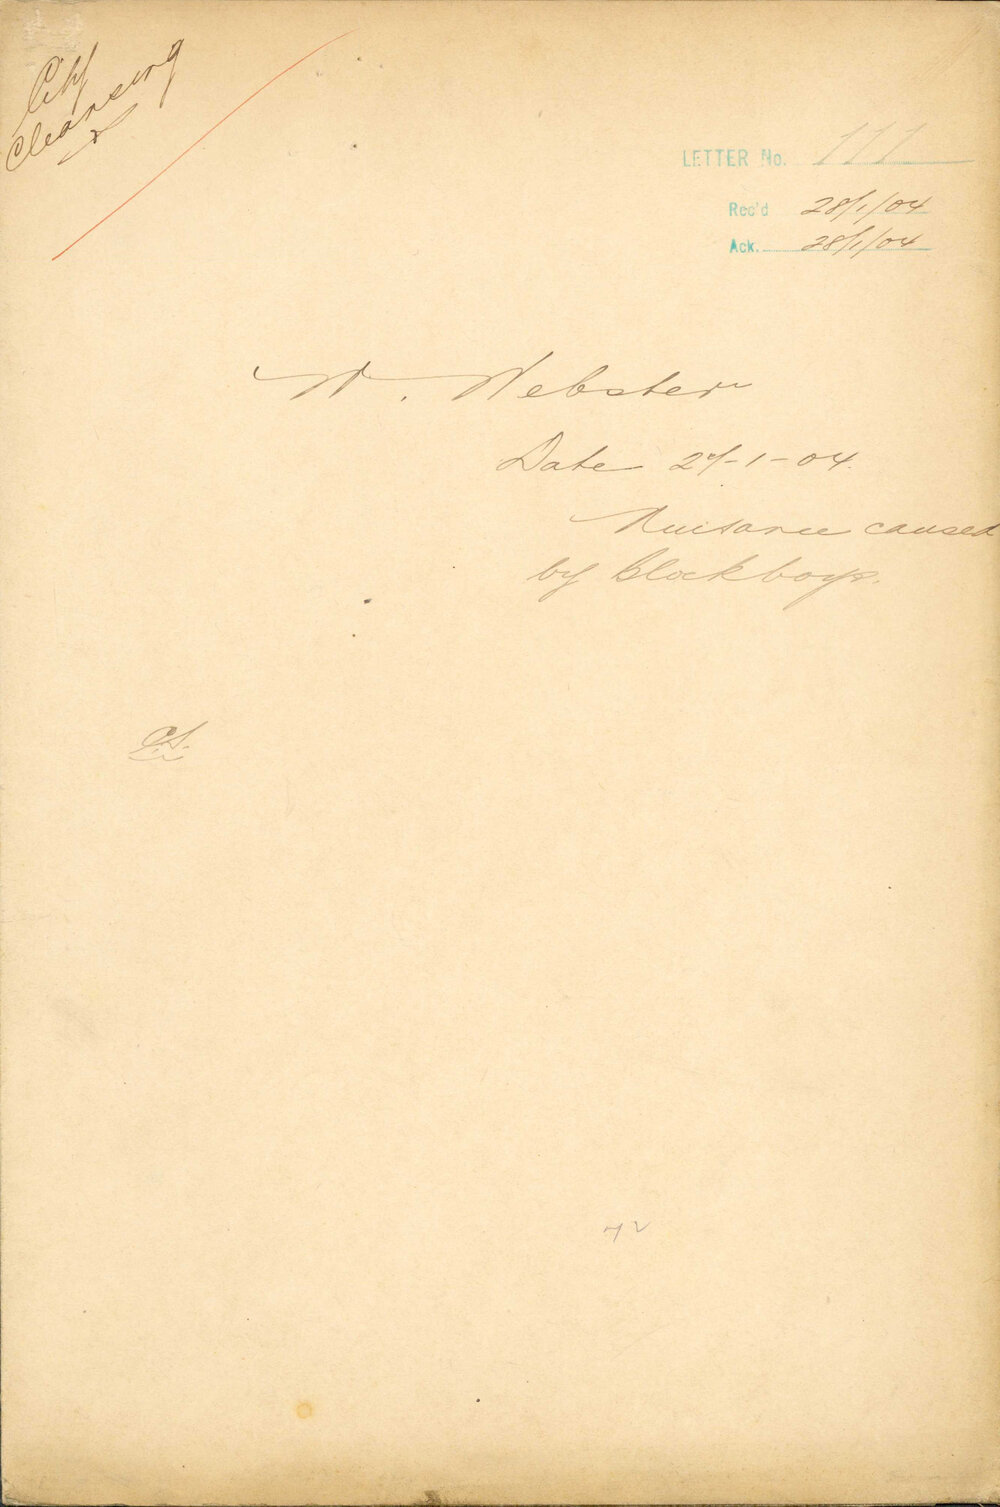 City
Cleansing
LETTER No. 111
Rec'd 28/1/04
Ack. 28/1/04
W. Webster
Date 27-1-04.
Nuisance caused
by Blockboys.
C.S.
72